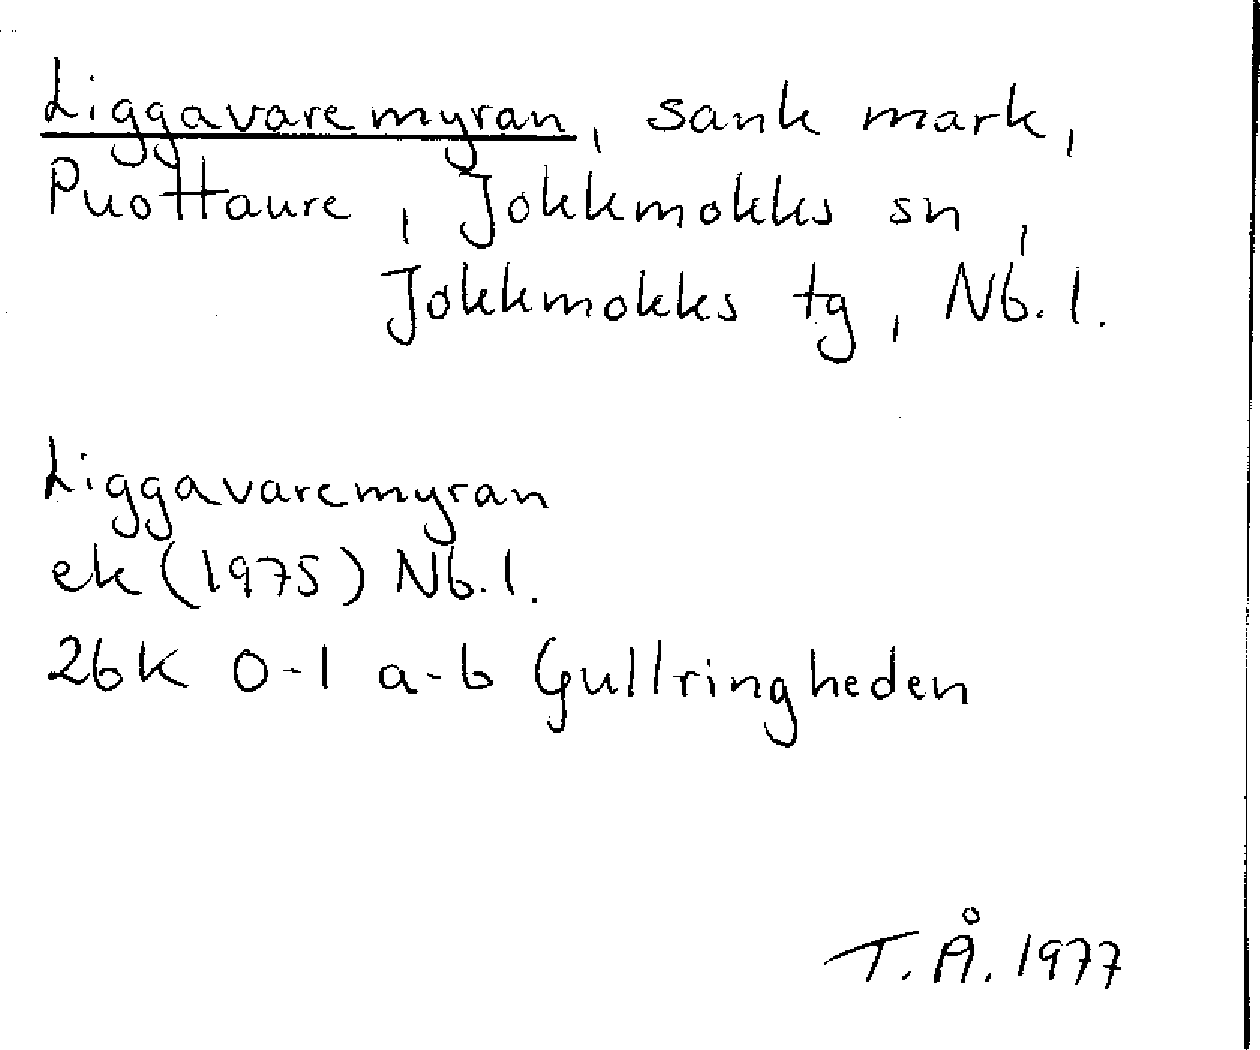 Liggavaremyran, sank mark,
Puottaure, Jokkmokks sn,
Jokkmokks tg, Nb. l.
Liggavaremyran
ek (1975) Nb. l.
26K 0-1 a-b Gullringheden
T. Å. 1977